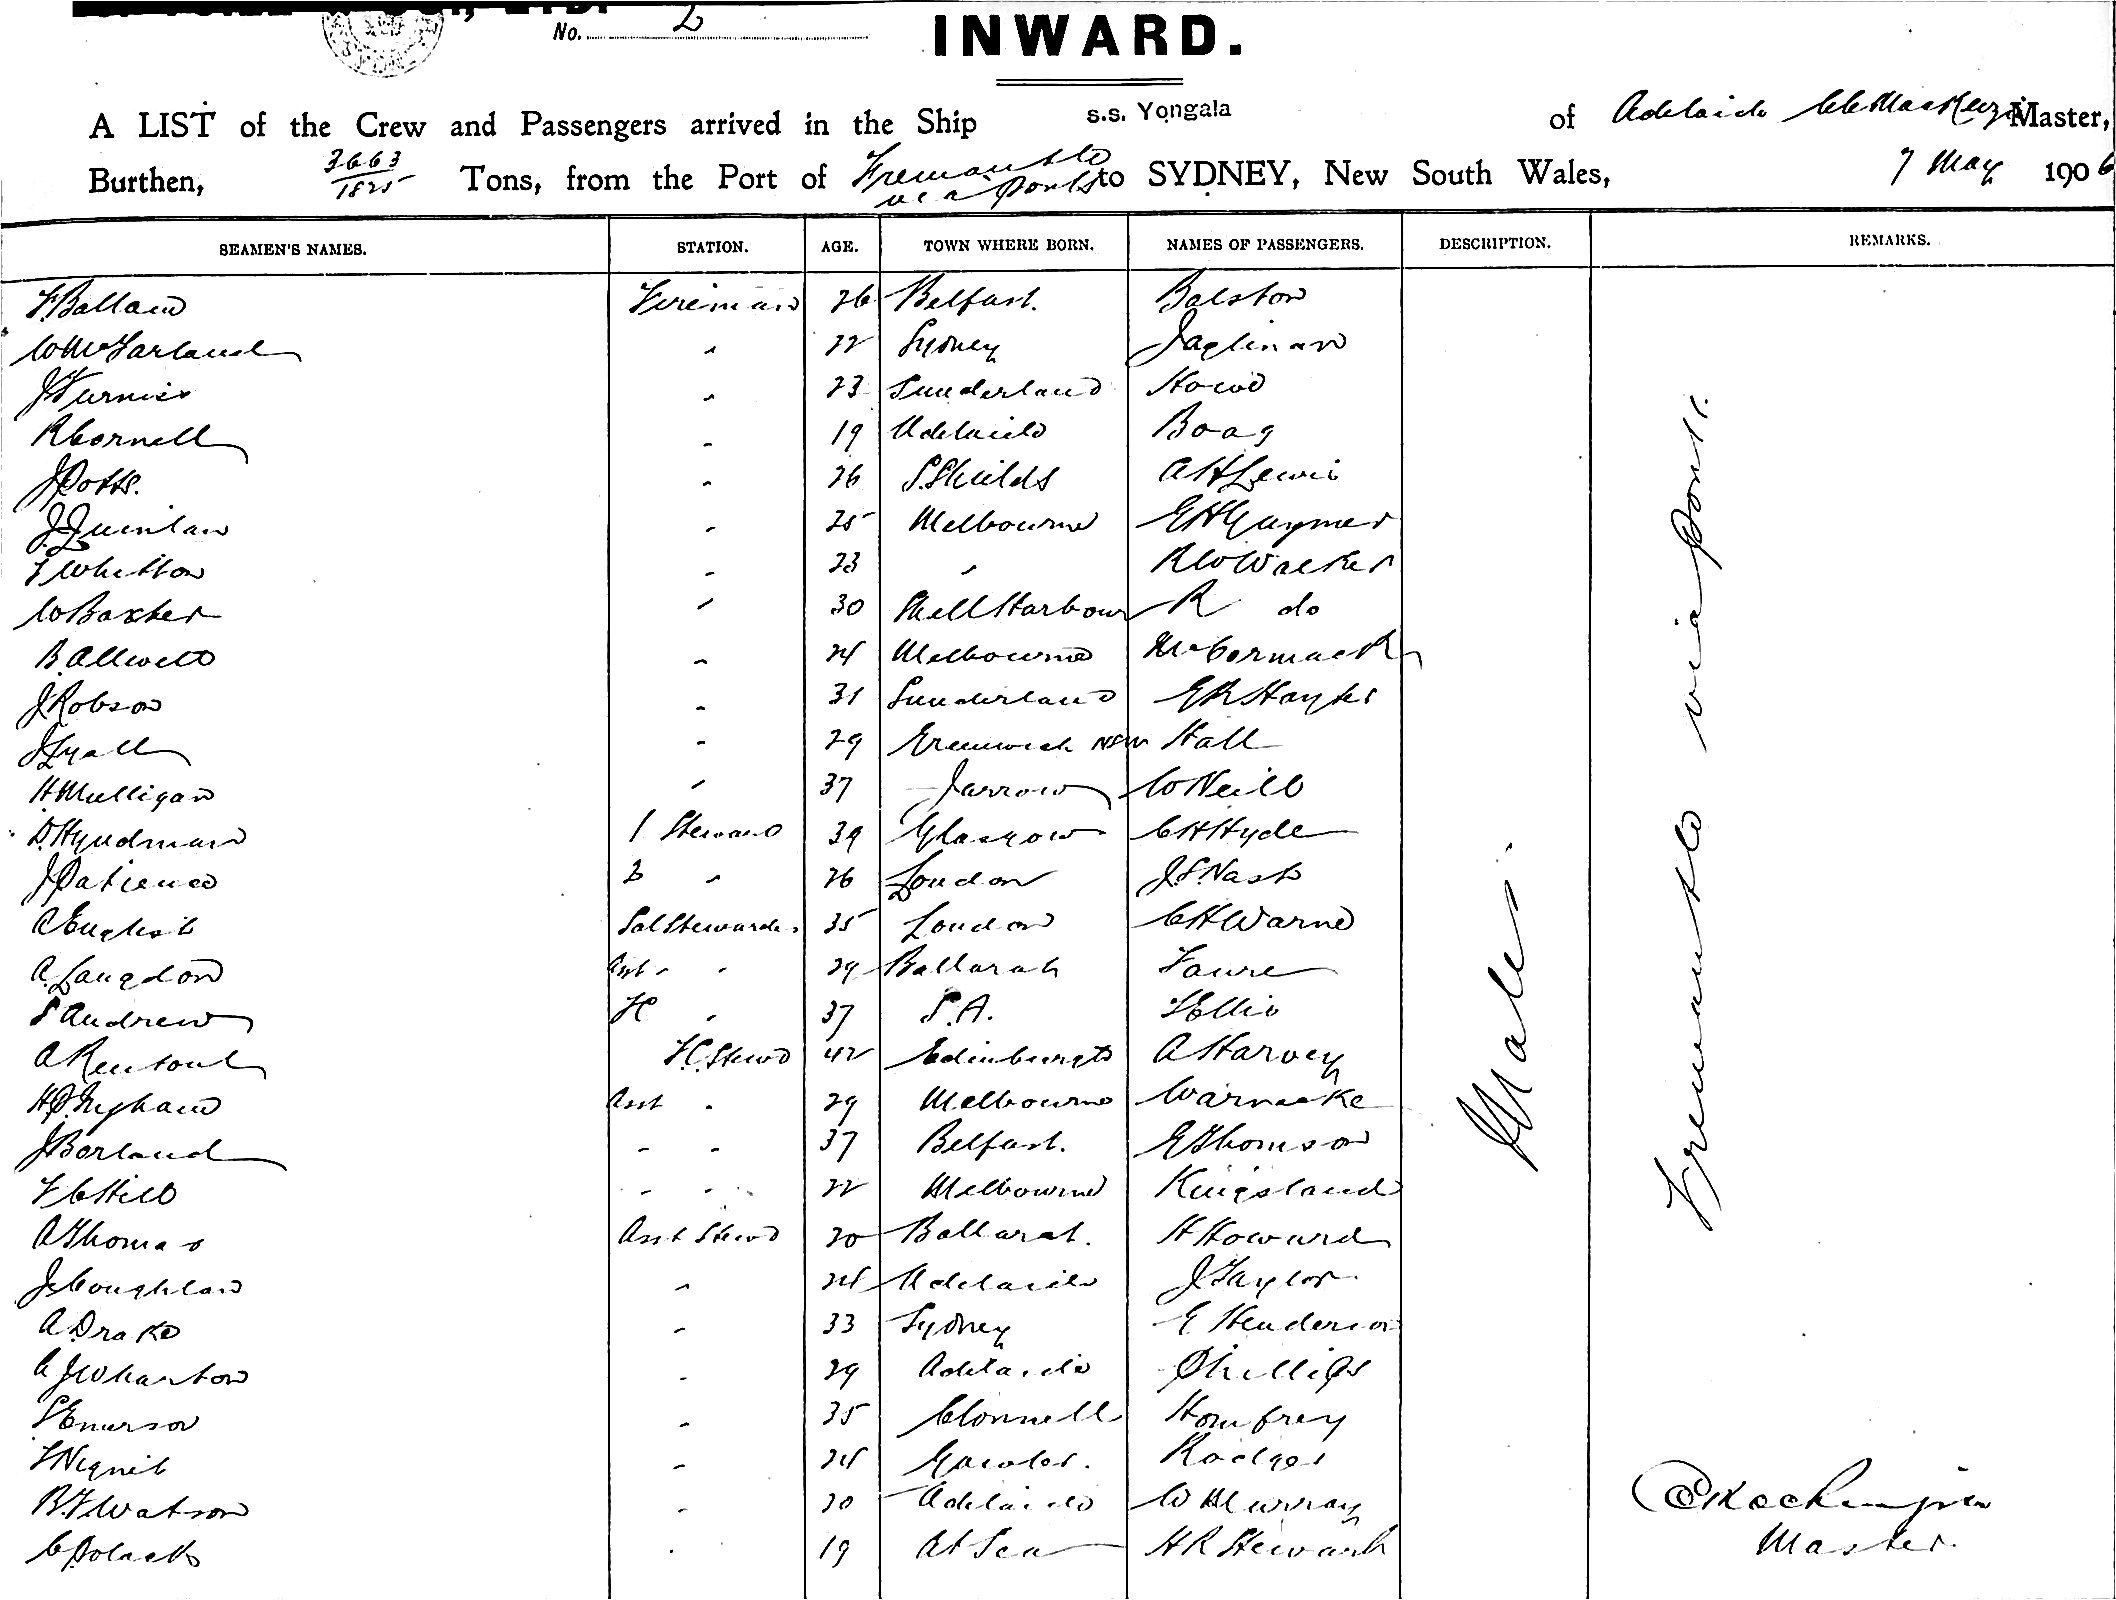 No. 2
INWARD.
A LIST of the Crew and Passengers arrived in the Ship s.s. Yongala of Adelaide Master,
Burthen, 3663/1825 Tons, from the Port of Fremantle via Ports to SYDNEY, New South Wales, 7 May 1906
SEAMEN'S NAMES. STATION. AGE. TOWN WHERE BORN. NAMES OF PASSENGERS. DESCRIPTION. REMARKS.
Fireman 26 Belfast. Balston
W McFarland " 22 Sydney
J Furniss " 23 Sunderland Howe
R Cornell " 19 Adelaide Boag
J Potts. " 26 S. Shields A H Lewis
J. Quinlan " 25 Melbourne E H Guymer
F Whitton " 23 " R W Walker
W Baxter " 30 Shell Harbour R do
B. " 24 Melbourne McCormack
J Robson " 31 Sunderland
J Lyall " 29 Greenwich NSW Hall
H Mulligan " 37 Jarrow W Neill
D. Hyndman 1 Steward 39 Glasgow C H Hyde
J Patience 2 " 26 London J. S. Nash
A English Sal Stewards 35 London C H Warne
A. Langdon Asst " " 29 Ballarat Faure
S Andrew " 37 S. A. Ellis
A Rentoul F. C. Stewd 42 Edinburgh A Harvey
H P. Ingham Asst " 29 Melbourne Warnecke
J Borland " " 37 Belfast. E Thomson
F C Hill " " 22 Melbourne Kingsland
A Thomas Asst Stewd 20 Ballarat. H Howard
J Coughlan " 24 Adelaide J Taylor
A Drake " 33 Sydney E Henderson
C J Wharton " 29 Adelaide Phillips
S Emerson " 35 Clonmell Homfrey
" 24 Gawler. Rodges
B. F Watson " 20 Adelaide W Murray
C Polack " 19 At Sea H R Stewart
Males.
Fremantle via Ports.
Master.